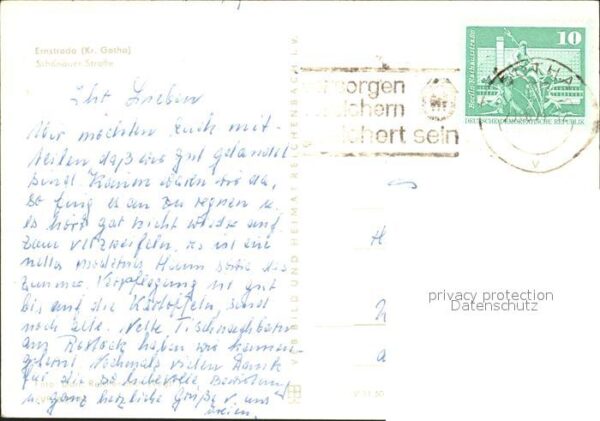 Ernstroda (Kr. Gotha)
Schönauer Straße
Ihr Lieben
Wir möchten Euch mit-
teilen daß wir gut gelandet
sind. Kaum waren wir da,
so fing es an zu regnen u.
es hört gar nicht wieder auf
zum verzweifeln. es ist ein
nettes modernes Haus sowie das
Zimmer. Verpflegung ist gut
bis auf die Kartoffeln, sind
noch alte. Nette Tischnachbarn
aus Rostock haben wir kennen
gelernt. Nochmals vielen Dank
für die so liebevolle Bewirtung
u ganz herzliche Grüße v. uns
zweien.
VEB BILD UND HEIMAT REICHENBACH I. V.
10
Berlin, Rathausstraße
DEUTSCHE DEMOKRATISCHE REPUBLIK
GOTHA
vorsorgen
sichern
sichert sein
H
a
privacy protection
Datenschutz